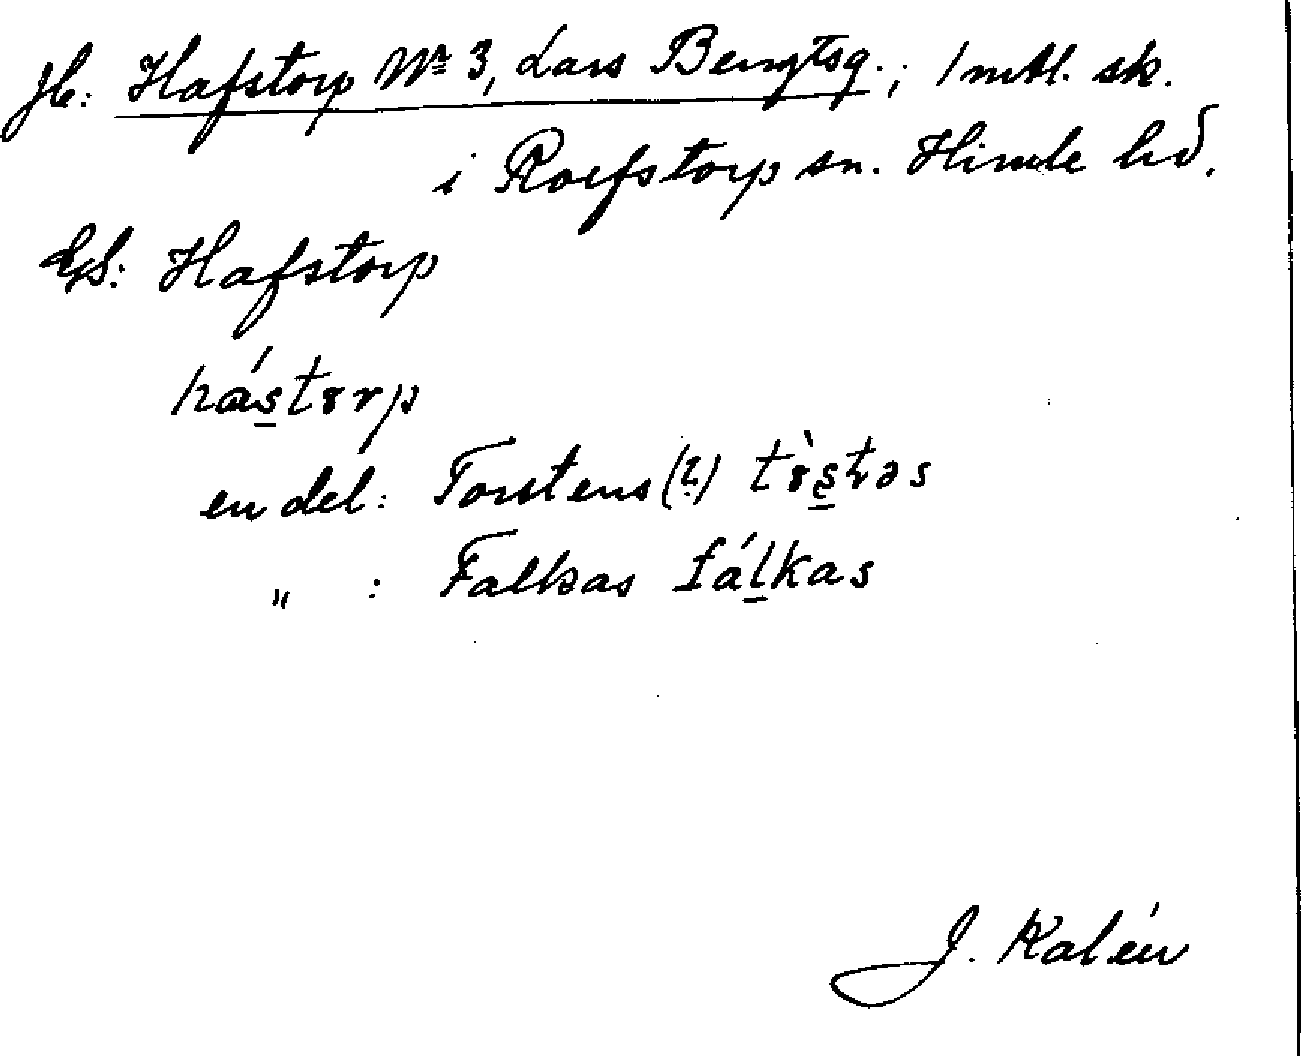 Jb: Hafstorp No 3, Lars Bengtsg.; 1 mtl. sk.
i Rolfstorp sn. Himle hd.
GS: Hafstorp
hástørp
en del: Torstens (?)
" : Falkas fálkas
J. Kalén